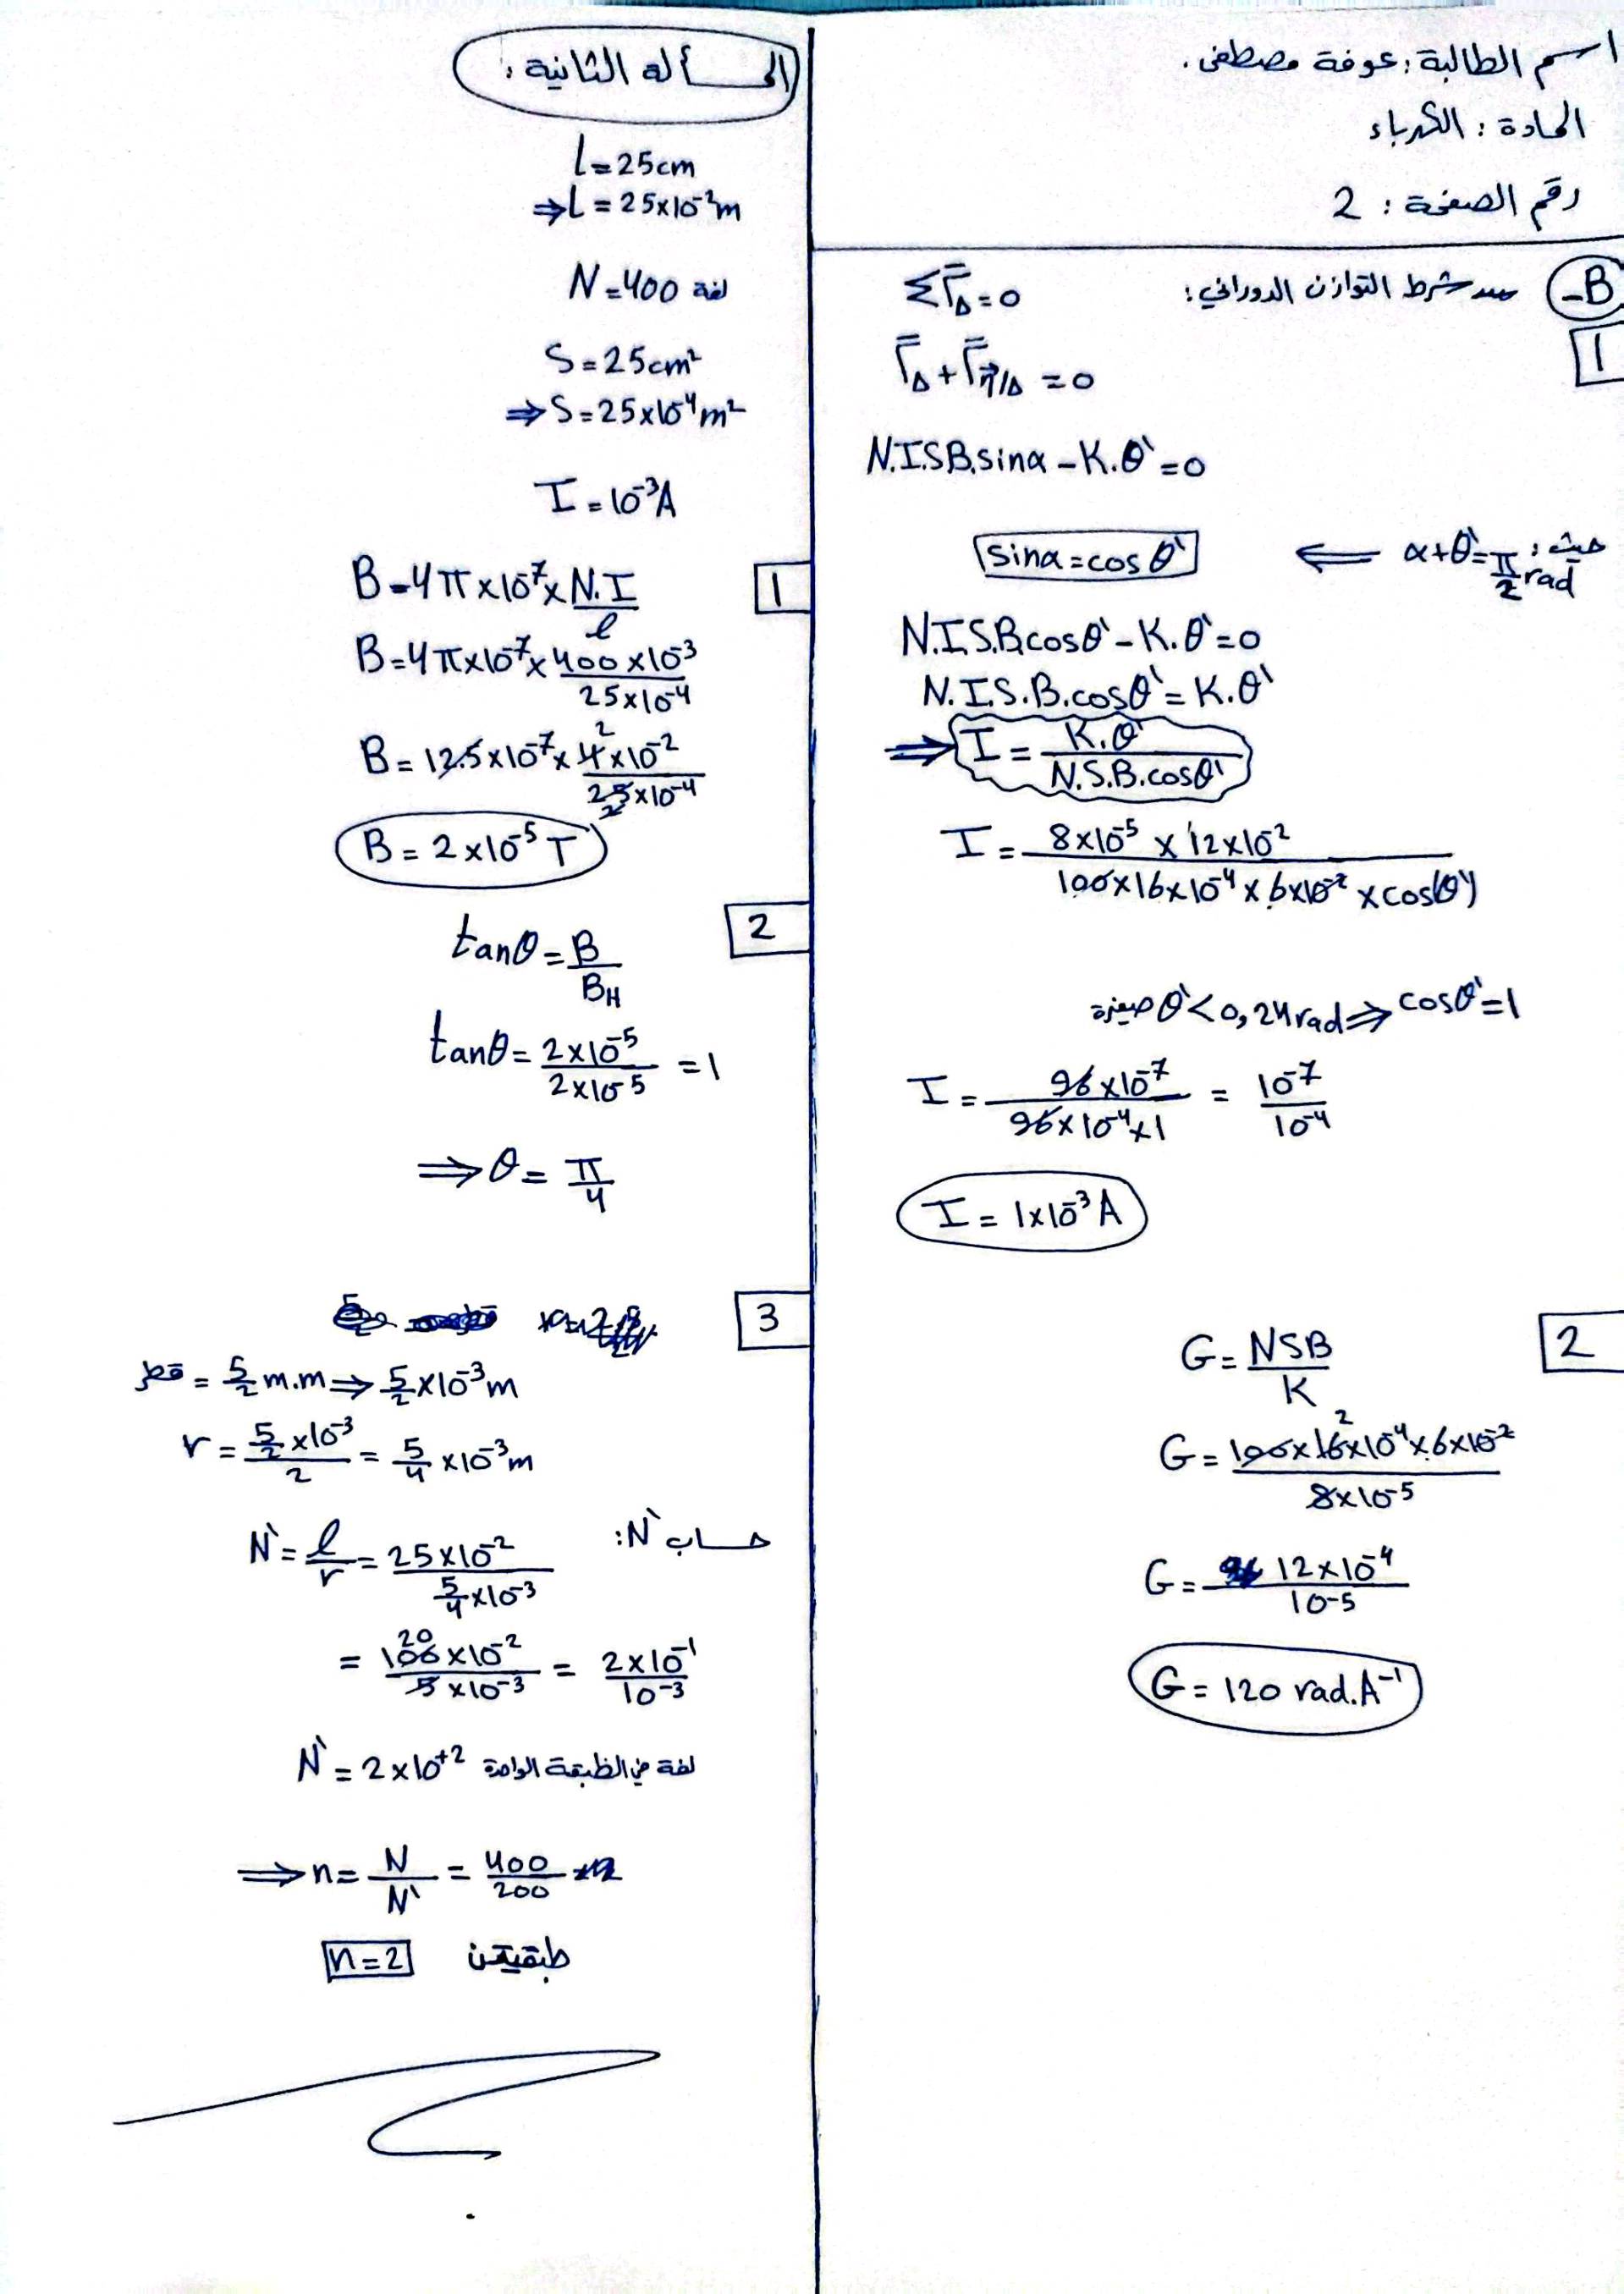 اسم الطالبة: عوفة مصطفى.
المادة: الكهرباء
رقم الصفحة: 2
B-
من شرط التوازن الدوراني: Σ Γ̄Δ = 0
1
Γ̄Δ + Γ̄η⃗/Δ = 0
N.I.S.B.sinα - K.θ' = 0
حيث: α+θ' = π/2 rad ⟸ sinα = cosθ'
N.I.S.B.cosθ' - K.θ' = 0
N.I.S.B.cosθ' = K.θ'
⇒ I = K.θ' / N.S.B.cosθ'
I = 8×10⁻⁵ × 12×10⁻² / 100×16×10⁻⁴ × 6×10⁻² × cos(θ')
θ' < 0,24 rad صغيرة ⇒ cosθ' = 1
I = 96×10⁻⁷ / 96×10⁻⁴×1 = 10⁻⁷ / 10⁻⁴
I = 1×10⁻³ A
2
G = NSB / K
G = 100×16×10⁻⁴×6×10⁻² / 8×10⁻⁵
G = 12×10⁻⁴ / 10⁻⁵
G = 120 rad.A⁻¹
المسألة الثانية:
l = 25cm
⇒ L = 25×10⁻²m
N = 400 لفة
S = 25cm²
⇒ S = 25×10⁻⁴m²
I = 10⁻³A
1
B = 4π×10⁻⁷× N.I / l
B = 4π×10⁻⁷× 400×10⁻³ / 25×10⁻⁴
B = 12.5×10⁻⁷× 4×10⁻² / 25×10⁻⁴
B = 2×10⁻⁵ T
2
tanθ = B / BH
tanθ = 2×10⁻⁵ / 2×10⁻⁵ = 1
⇒ θ = π/4
3
قطر = 5/2 m.m ⇒ 5/2 ×10⁻³m
r = 5/2 ×10⁻³ / 2 = 5/4 ×10⁻³m
حساب N':
N' = l / r = 25×10⁻² / 5/4 ×10⁻³
= 100×10⁻² / 5×10⁻³ = 2×10⁻¹ / 10⁻³
N' = 2×10⁺² لفة في الطبقة الواحدة
⇒ n = N / N' = 400 / 200
n = 2 طبقتين